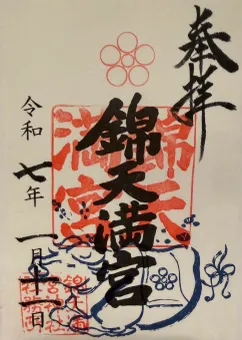 奉拝
錦天満宮
令和七年一月十一日
錦天
満宮